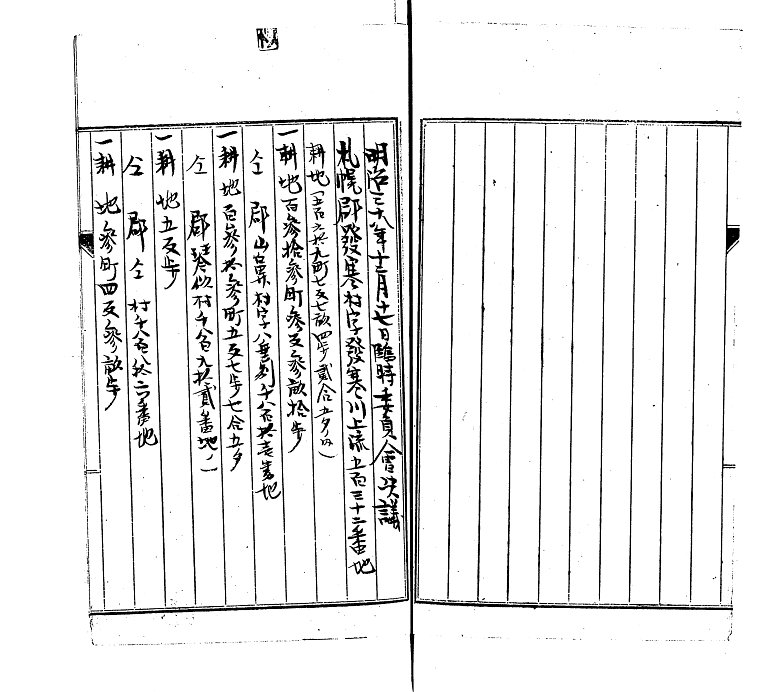 明治三十八年十二月十七日臨時委員會决議
札幌郡發寒村字發寒川上流五百三十二番地
耕地(五百六拾九町七反七畝四歩貳合五夕ノ内)
一耕地百參拾參町參反參畝拾歩
仝郡山鼻村字八垂別千八百拾壱番地
一耕地百參拾參町五反七歩七合五夕
仝郡琴似村千百九拾貳番地ノ一
一耕地五反歩
仝郡仝村千八百八拾六番地
一耕地參町四反參畝歩